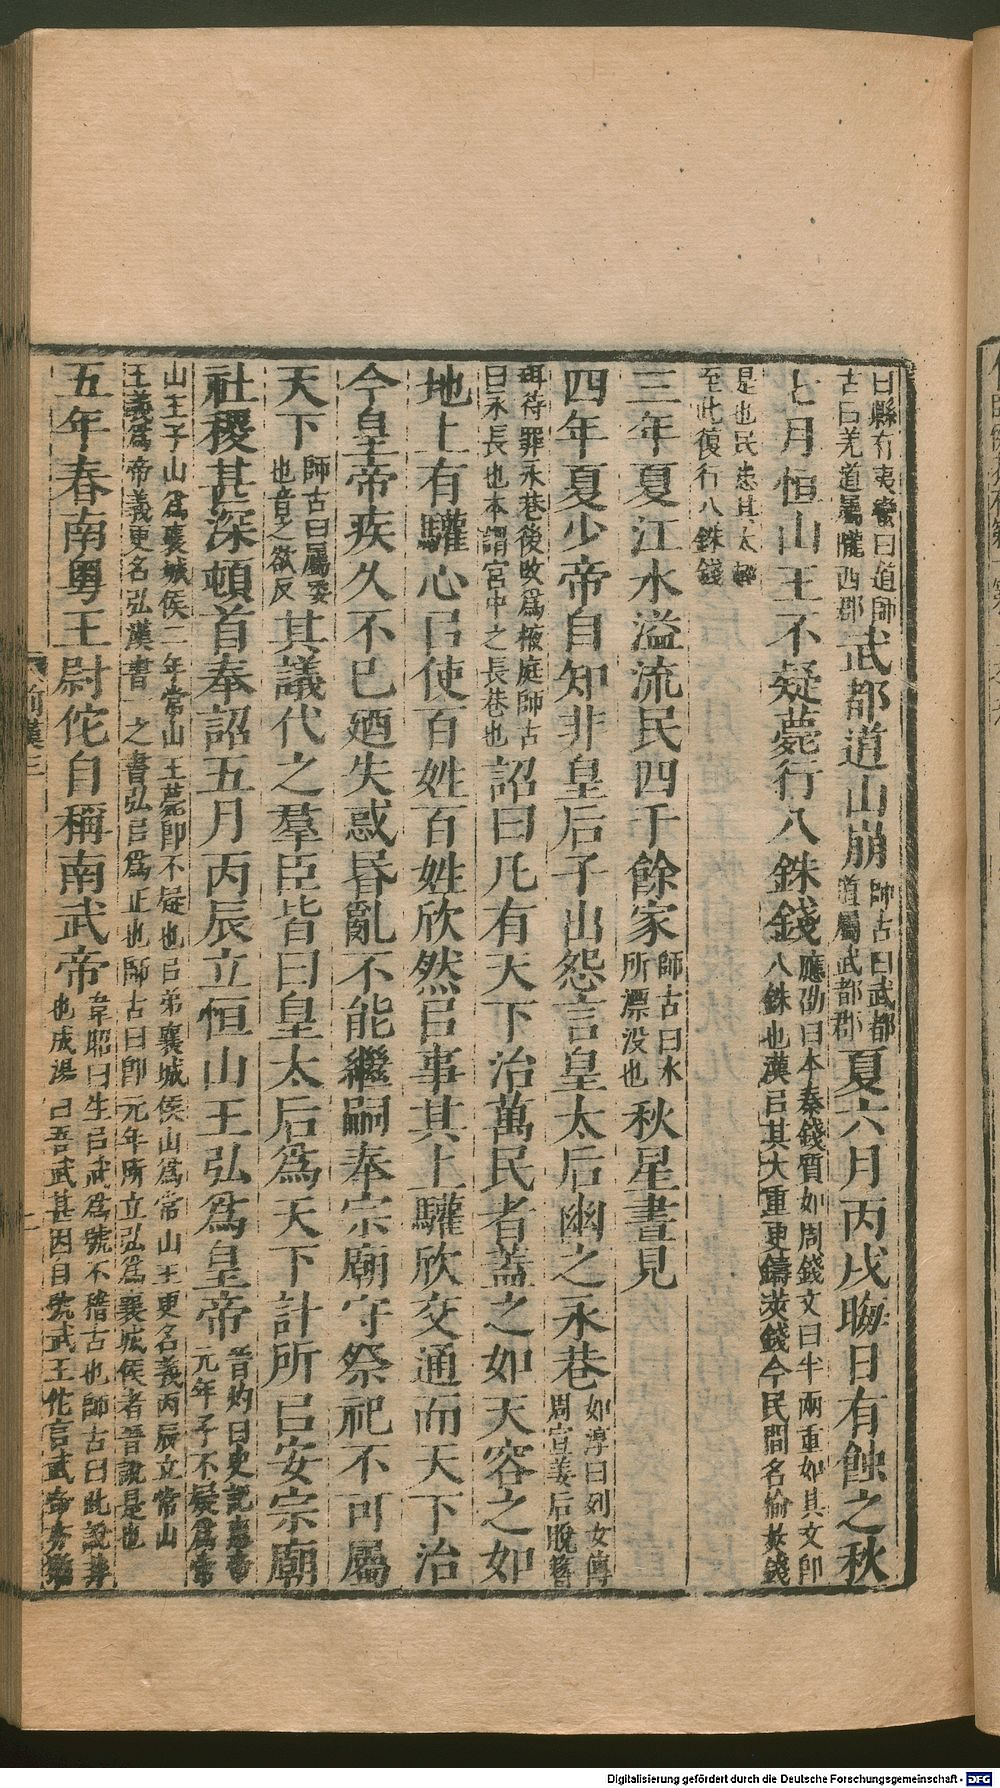 曰縣有夷蠻曰道師古曰羌道屬隴西郡武都道山崩師古曰武都道屬武都郡夏六月丙戌晦日有蝕之秋
七月恒山王不疑薨行八銖錢應劭曰本秦錢質如周錢文曰半兩重如其文即八銖也漢㠯其大重更鑄莢錢今民間名榆莢錢
是也民患其太輕至此復行八銖錢
三年夏江水溢流民四千餘家師古曰水所漂没也秋星晝見
四年夏少帝自知非皇后子出怨言皇太后幽之永巷如淳曰列女傳周宣姜后脫簪
珥待罪永巷後改爲掖庭師古曰永長也本謂宮中之長巷也詔曰凡有天下治萬民者蓋之如天容之如
地上有驩心㠯使百姓百姓欣然㠯事其上驩欣交通而天下治
今皇帝疾久不已廼失惑昏亂不能繼嗣奉宗廟守祭祀不可屬
天下師古曰屬委也音之欲反其議代之羣臣皆曰皇太后爲天下計所㠯安宗廟
社稷甚深頓首奉詔五月丙辰立恒山王弘爲皇帝晉灼曰史記惠帝元年子不疑爲常
山王子山爲襄城侯二年常山王薨即不疑也㠯弟襄城侯山爲常山王更名義丙辰立常山王義爲帝義更名弘漢書一之書弘㠯爲正也師古曰即元年所立弘爲襄城侯者晉說是也
五年春南粵王尉佗自稱南武帝韋昭曰生㠯武爲號不稽古也師古曰此說非也成湯曰吾武甚因自號武王佗言武帝亦猶
前漢三
Digitalisierung gefördert durch die Deutsche Forschungsgemeinschaft - DFG